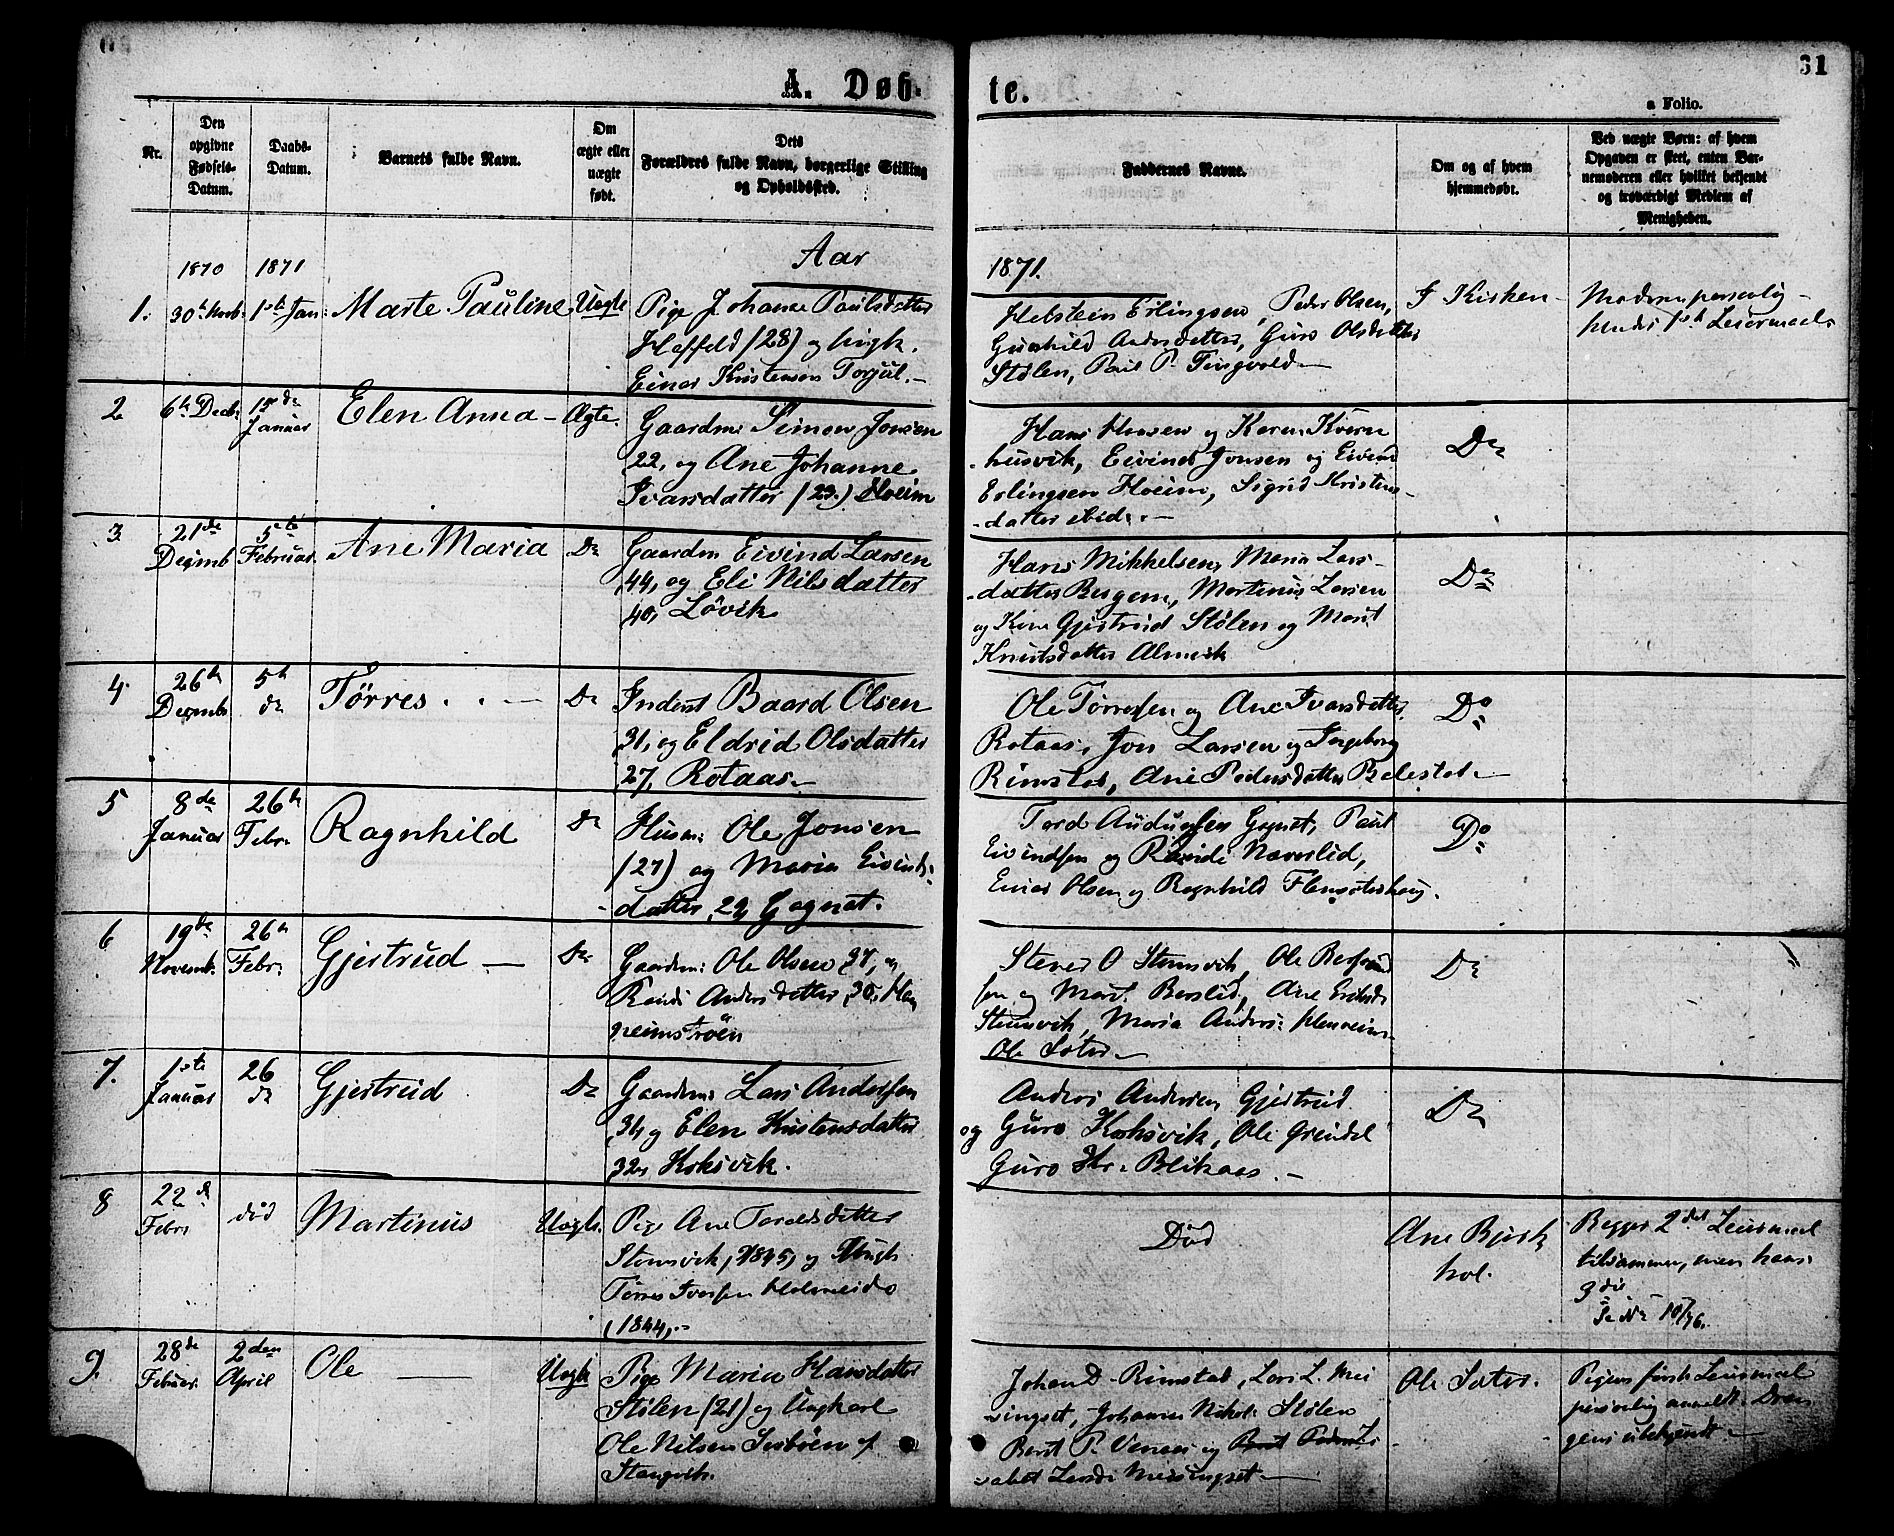 A. Døb-
te.
61
a Folio.
Nr.
Den
opgivne
Fødsels-
Datum.
Daabs-
Datum.
Barnets fulde Navn.
Om
ægte eller
uægte
født.
Dets
Forældres fulde Navn, borgerlige Stilling
og Opholdssted.
Faddernes Navne.
Om og af hvem
hjemmedøbt.
Ved uægte Børn: af hvem
Opgaven er skeet, enten Bar-
nemoderen eller hvilket bekjendt
og troværdigt Medlem af
Menigheden.
Aar
1871.
1870
1871
1.
30te Novb:
1ste Jan:
Marte Pauline
Uægte
Pige Johanne Paulsdatter
Hoffeld (28) og
Einar Kristensen Torjul.
Halstein Erlingsen, Peder Olsen,
Gunhild Andersdatter, Guro Olsdatter
Stølen, Paul P. Tingvold
I Kirken
Moderen personlig
hendes 1ste Leiermaal
2
6te Decb:
Januar
Elen Anna
Ægte.
Gaardm: Simon Jonsen
22, og Ane Johanne
Ivarsdatter (23.) Hoeim
Hans Hansen og Karen Kvern
husvik, Eivind Jonsen og Eivind
Erlingsen Hoeim, Sigrid Kristens
datter ibid.
Do
3
21de
Decemb
5te
Februar
Ane Maria
Do
Gaardm Eivind Larsen
44, og Eli Nilsdatter
40, Løvik
Hans Mikkelsen, Maria Lars-
datter Bergem, Martinus Larsen
og Gjertrud Stølen og Marit
Knutsdatter Almvik
Do
4.
26de
Decemb
5te
do
Tørres
Do
Inderst Baard Olsen
31, og Eldrid Olsdatter
27, Rotaas
Ole Tørresen og Ane Ivarsdatter
Rotaas, Jon Larsen og Ingeborg
Rimstad, Ane Pedersdatter Belestad
Do
5
8de
Januar
26de
Febr.
Ragnhild
Do
Husm: Ole Jonsen
(27) og Maria Eivinds-
datter, 29, Gagnat.
Tord Audunsen Gagnat, Paul
Eivindsen og Randi Naverlid,
Einar Olsen og Ragnhild Flemsæterhaug.
Do
6
19de
Novemb.
26de
Febr.
Gjertrud
Do
Gaardm: Ole Olsen 37, og
Randi Andersdatter, 30, Han
neimstrøen
Stener O Stomsvik, Ole
sen og Marit Berslid, Ane
Stomsvik, Maria Anders:
Ole Sæter
Do
7.
1ste
Januar
26
do
Gjertrud
Do
Gaardm: Lars Andersen
31, og Elen Kristensdatter
32, Koksvik.
Anders Andersen, Gjertrud
og Guro Koksvik, Ole Grindal
Guro Kr. Blikaas.
Do
8
22de
Febr.
død
Martinus
Uægte.
Pige Ane Toraldsdatter
Stomsvik, 1845, og Ungk
Tørres Ivarsen Holmeide
1844,
Død
Ane Bjerk
hol.
Begges 2det Leiermaal
tilsammen, men hans
3die
9.
28de
Februar.
2den
April
Ole
Uægte
Pige Maria Hansdatter
Stølen (21) og Ungkarl
Ole Nilsen af
Stangvik.
Johan D. Rimstad, Lars L. Mei
singset, Johannes Stølen
Berit P. og
Meisingset
Ole Sæter.
Pigens første Leiermaal
personlig anmeldt. Dren
gens ubekjendt